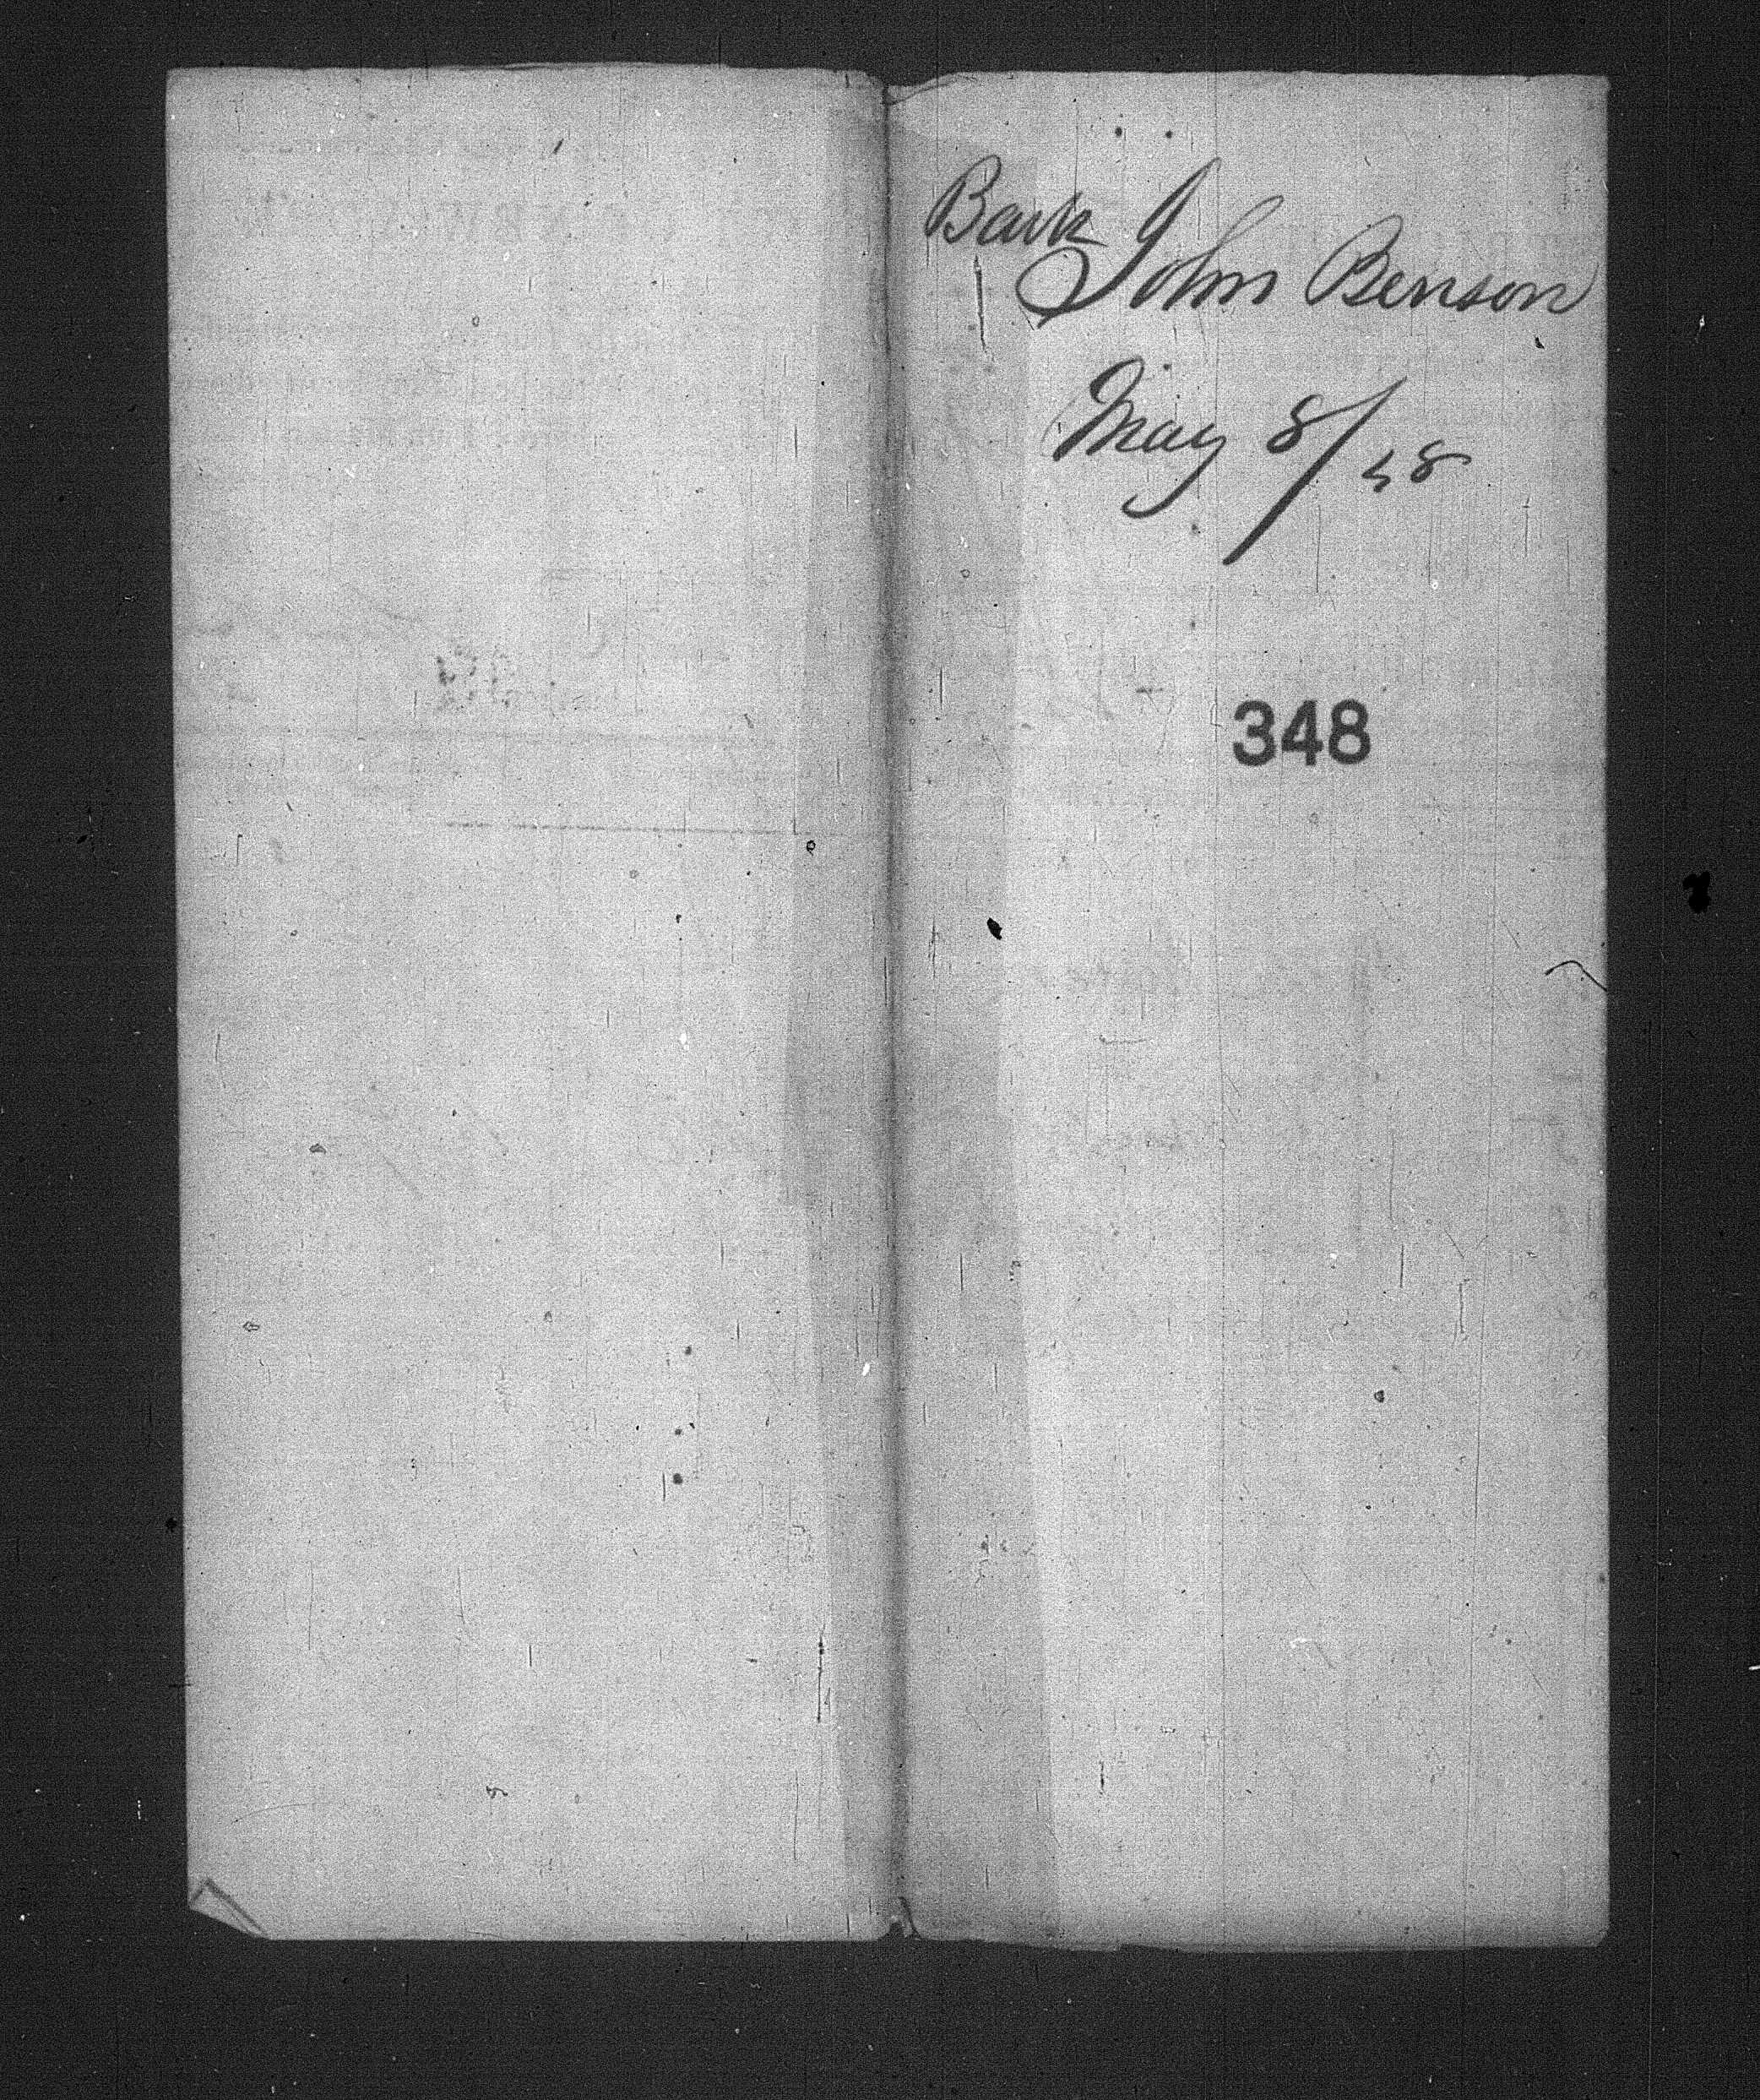 Bark
John Benson
May 8/58
348